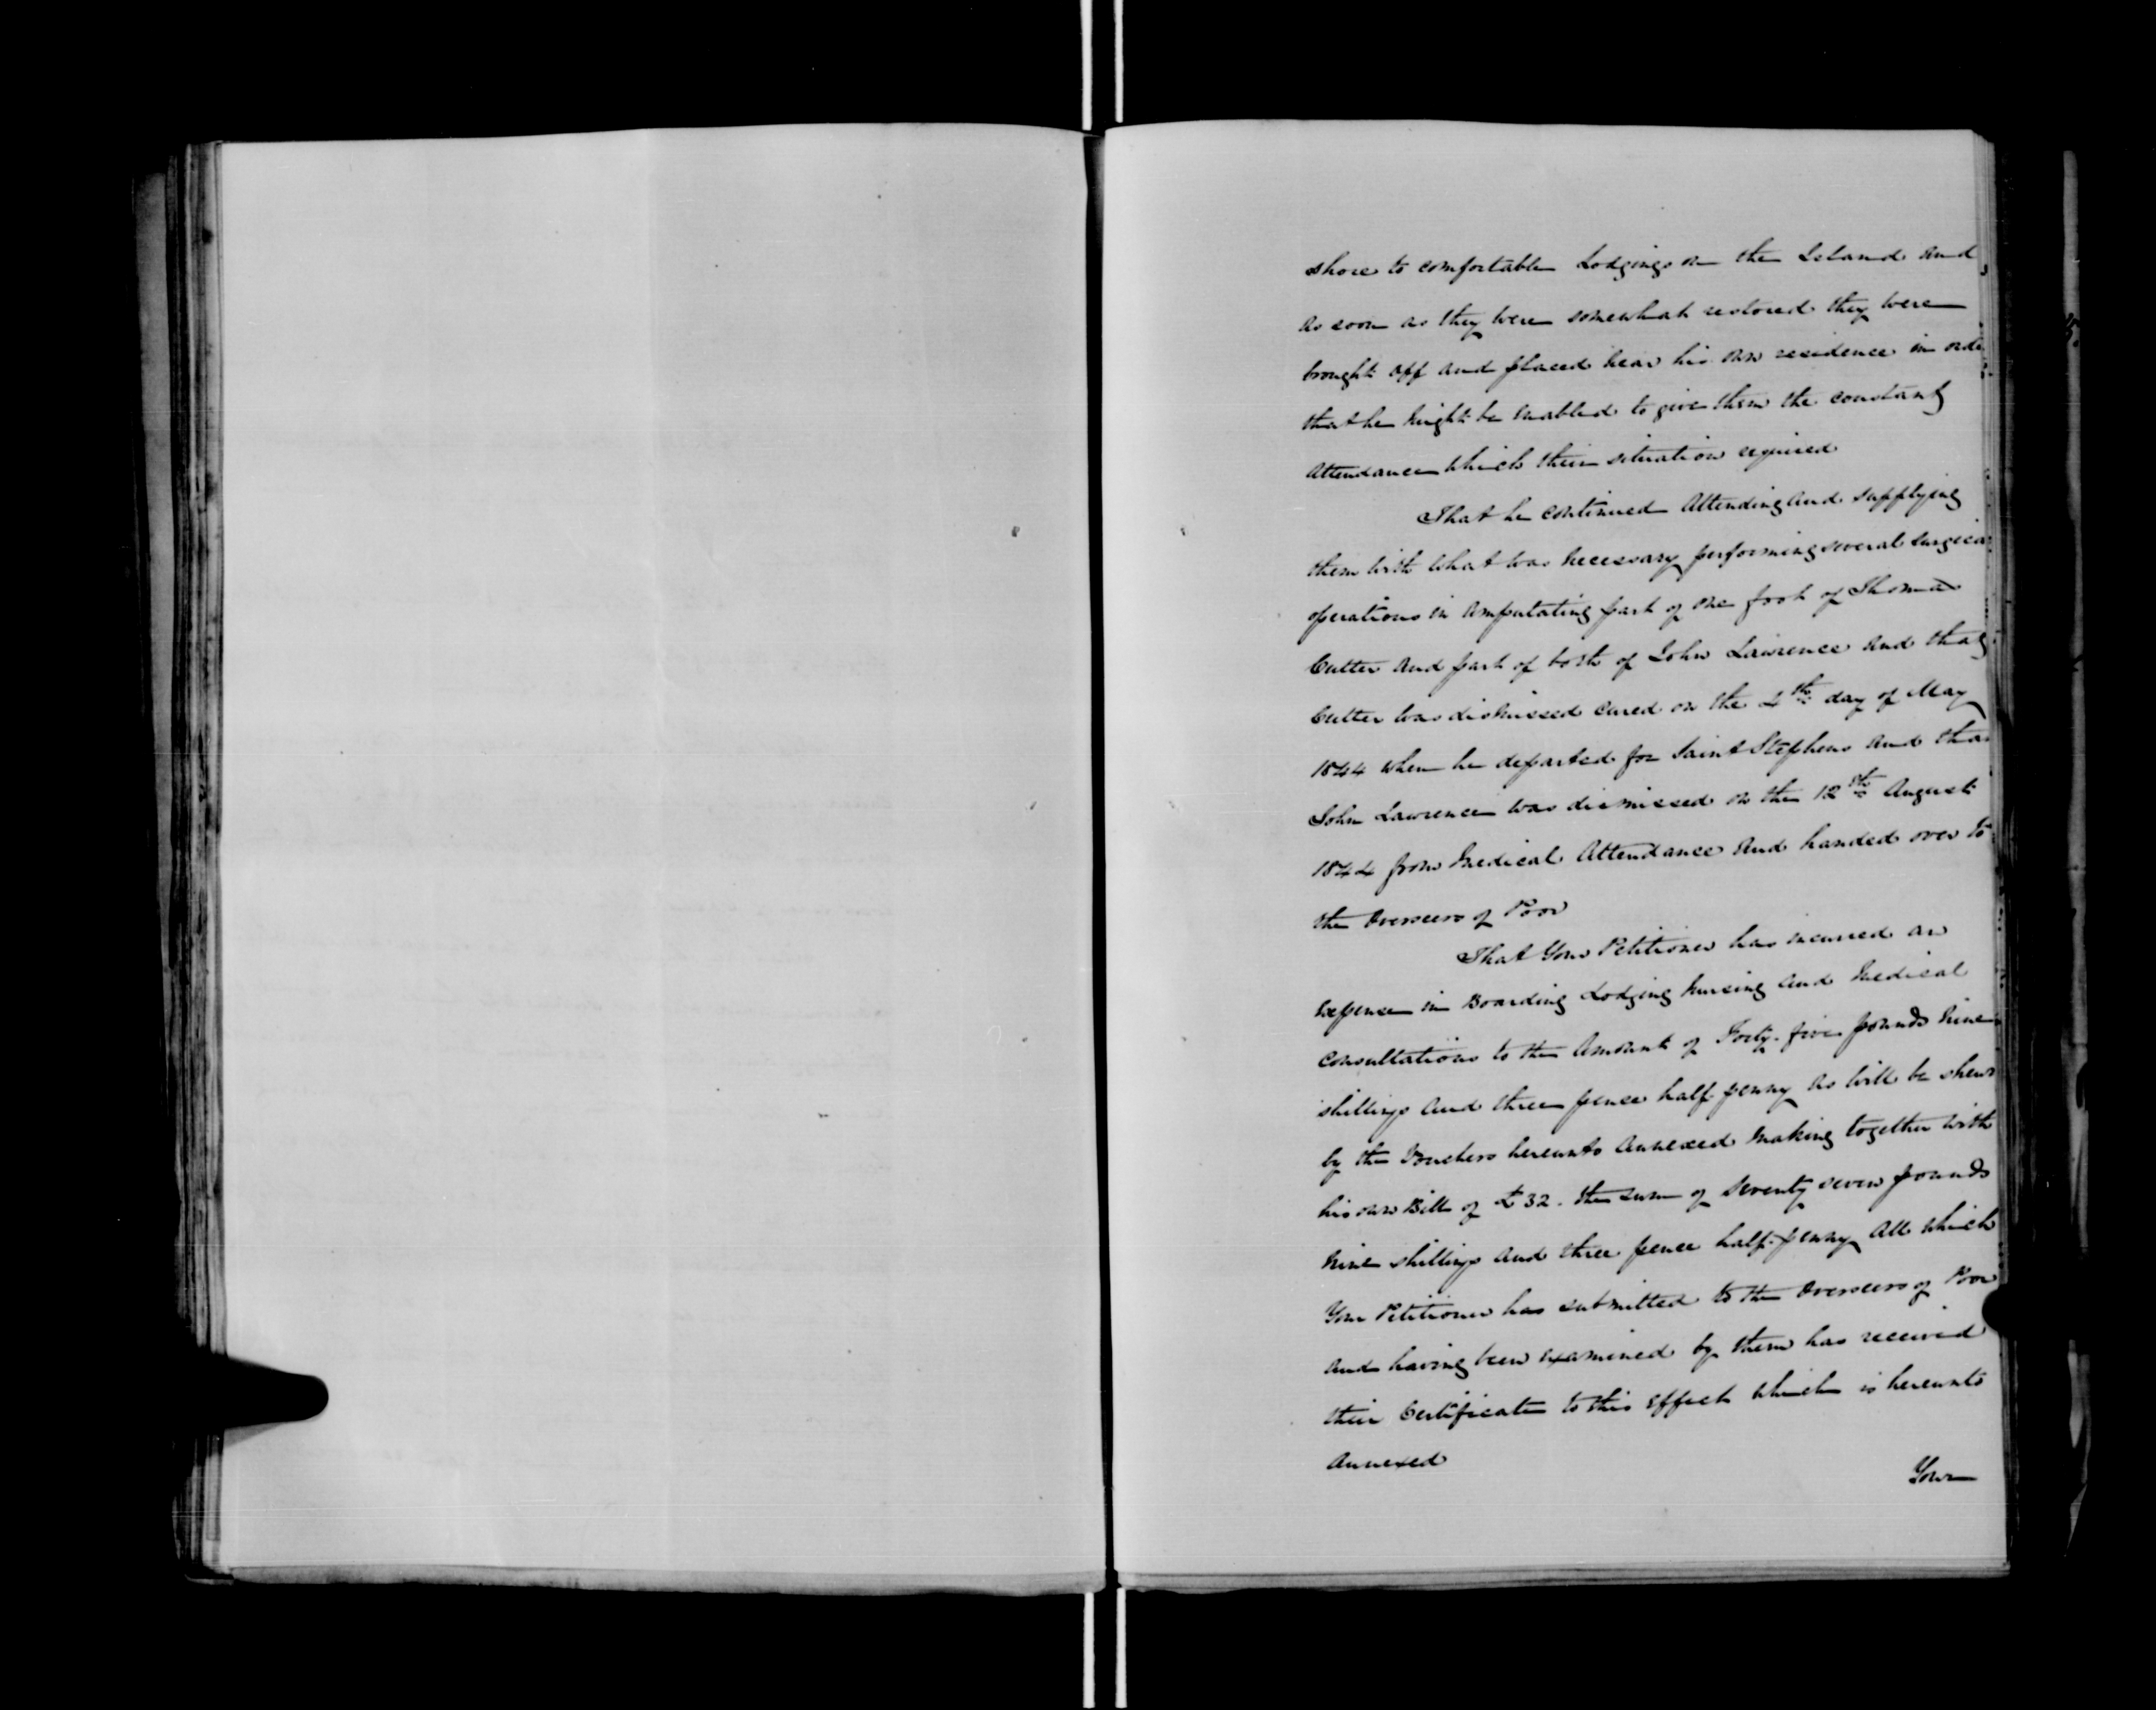 shore to comfortable Lodgings on the Island and
as soon as they were somewhat restored they were
brought off and placed near his own residence in orde
that he might be enabled to give them the constant
attendance which their situation required
That he continued attending and supplying
them with what was necessary performing several surgica
operations in amputating part of one foot of Thomas
Cutter and part of both of John Lawrence and that
Cutter was dismissed cured on the 4th day of May
1844 when he departed for Saint Stephens and tha
John Lawrence was dismissed on the 12th August
1844 from Medical Attendance and handed over to
the Overseers of Poor
That Your Petitioner has incurred an
Expense in Boarding Lodging Nursing and Medical
consultations to the Amount of Forty-five pounds Nine
shillings and three pence half-penny as will be shewn
by the Vouchers hereunto annexed making together with
his own Bill of £32. the sum of seventy seven pounds
Nine shillings and three pence half-penny all which
Your Petitioner has submitted to the Overseers of Poor
and having been examined by them has received
their Certificate to this effect which is hereunto
annexed
Your